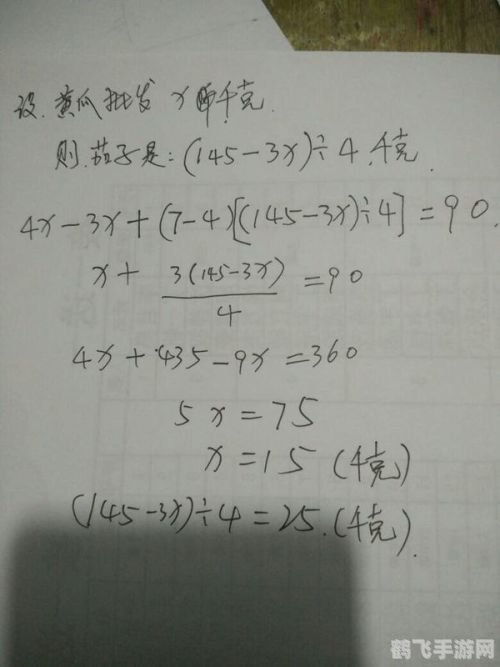 设.黄瓜批发 x 千克.
则.茄子是:(145-3x)÷4.千克.
4x-3x+(7-4)[(145-3x)÷4]=90.
x+ 3(145-3x)/4 =90
4x+435-9x=360
5x=75
x=15 (千克)
(145-3x)÷4=25.(千克).
鹤飞手游网